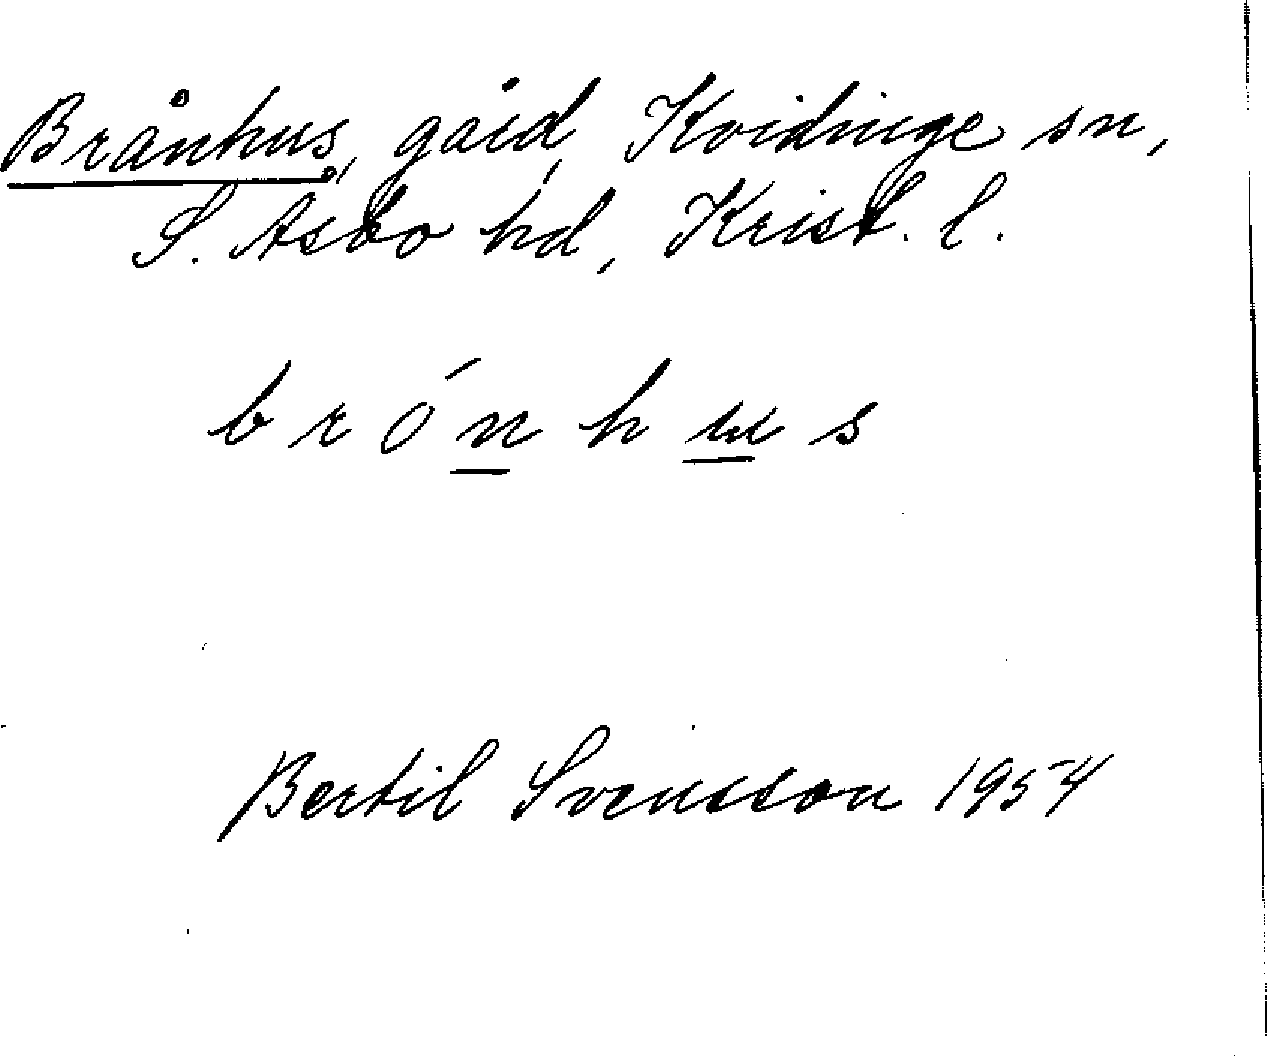 Brånhus, gård, Kvidinge sn,
S. Asbo hd, Krist. l.
brón̲hu̲s
Bertil Svensson 1954